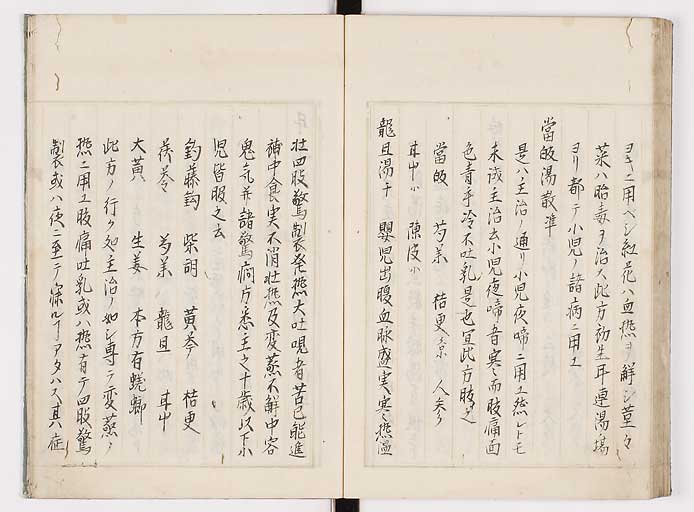 ヨキニ用ベシ紅花ハ血熱ヲ解シ菫々
菜ハ胎毒ヲ治ス此方初生耳連湯場
ヨリ都テ小児ノ諸病ニ用ユ
當皈湯散準
是ハ主治ノ通リ小児夜啼ニ用ユ然レトモ
未試主治云小児夜啼者寒而腹痛面
色青手冷不吐乳是也宜此方肢之
當皈 芍薬 桔更 人参
甘中小 陳皮小
龍旦湯千 嬰児出腹血脉盛実寒熱温
壮四肢驚掣発熱大吐哯者若已能進
補中食実不消壮熱及変蒸不解中客
鬼気并諸驚癇方悉主之十歳以下小
児皆服之云
釣藤鈎 柴胡 黄芩 桔更
茯苓 芍薬 龍旦 甘中
大黄 生姜 本方有蜣蜋
此方ノ行ク処主治ノ如シ専テ変蒸ノ
熱ニ用ユ腹痛吐乳或ハ熱有テ四肢驚
掣或ハ夜ニ至テ寐ルヿアタハス其症